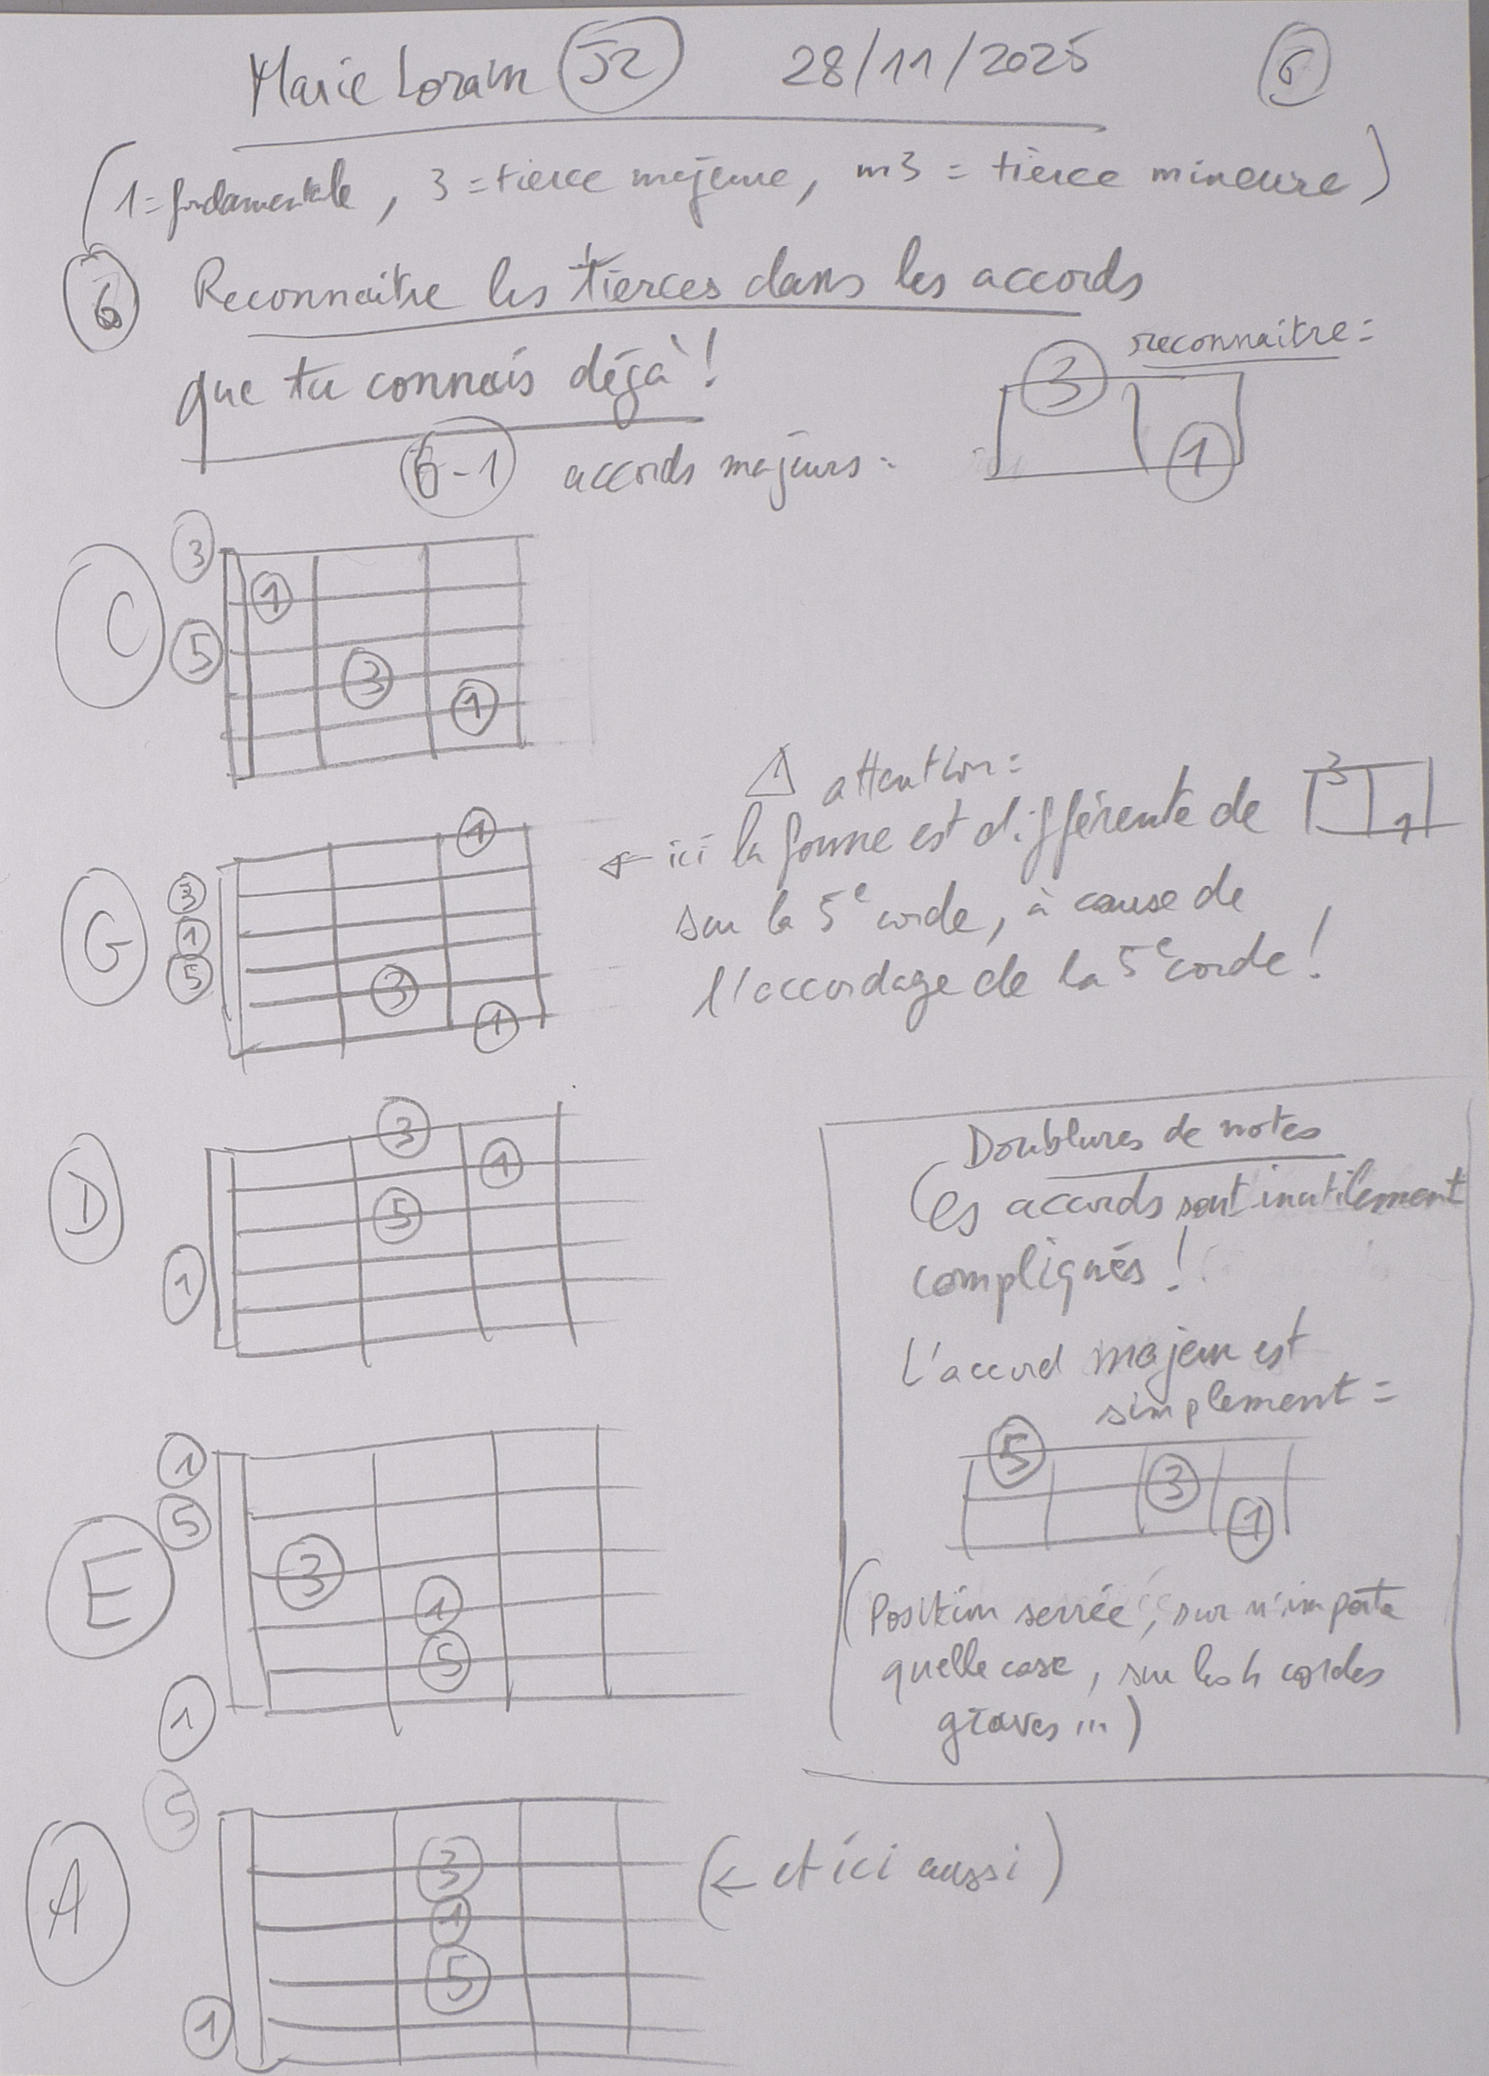 Marie Lorain 52 28/11/2025 6
(1=fondamentale, 3=tierce majeure, m3 = tierce mineure)
6 Reconnaitre les tierces dans les accords
que tu connais déjà !
reconnaitre :
3
1
6-1 accords majeurs :
C
3
1
5
3
1
⚠ attention :
← ici la forme est différente de 3 1
sur la 5e corde, à cause de
l'accordage de la 5e corde !
G
1
3
1
5
3
1
D
3
1
5
1
Doublures de notes
Ces accords sont inutilement
compliqués !
L'accord majeur est
simplement =
5
3
1
(Position serrée, sur n'importe
quelle case, sur les 4 cordes
graves ...)
E
1
5
3
1
5
1
A
5
3
1
5
1
(← et ici aussi)